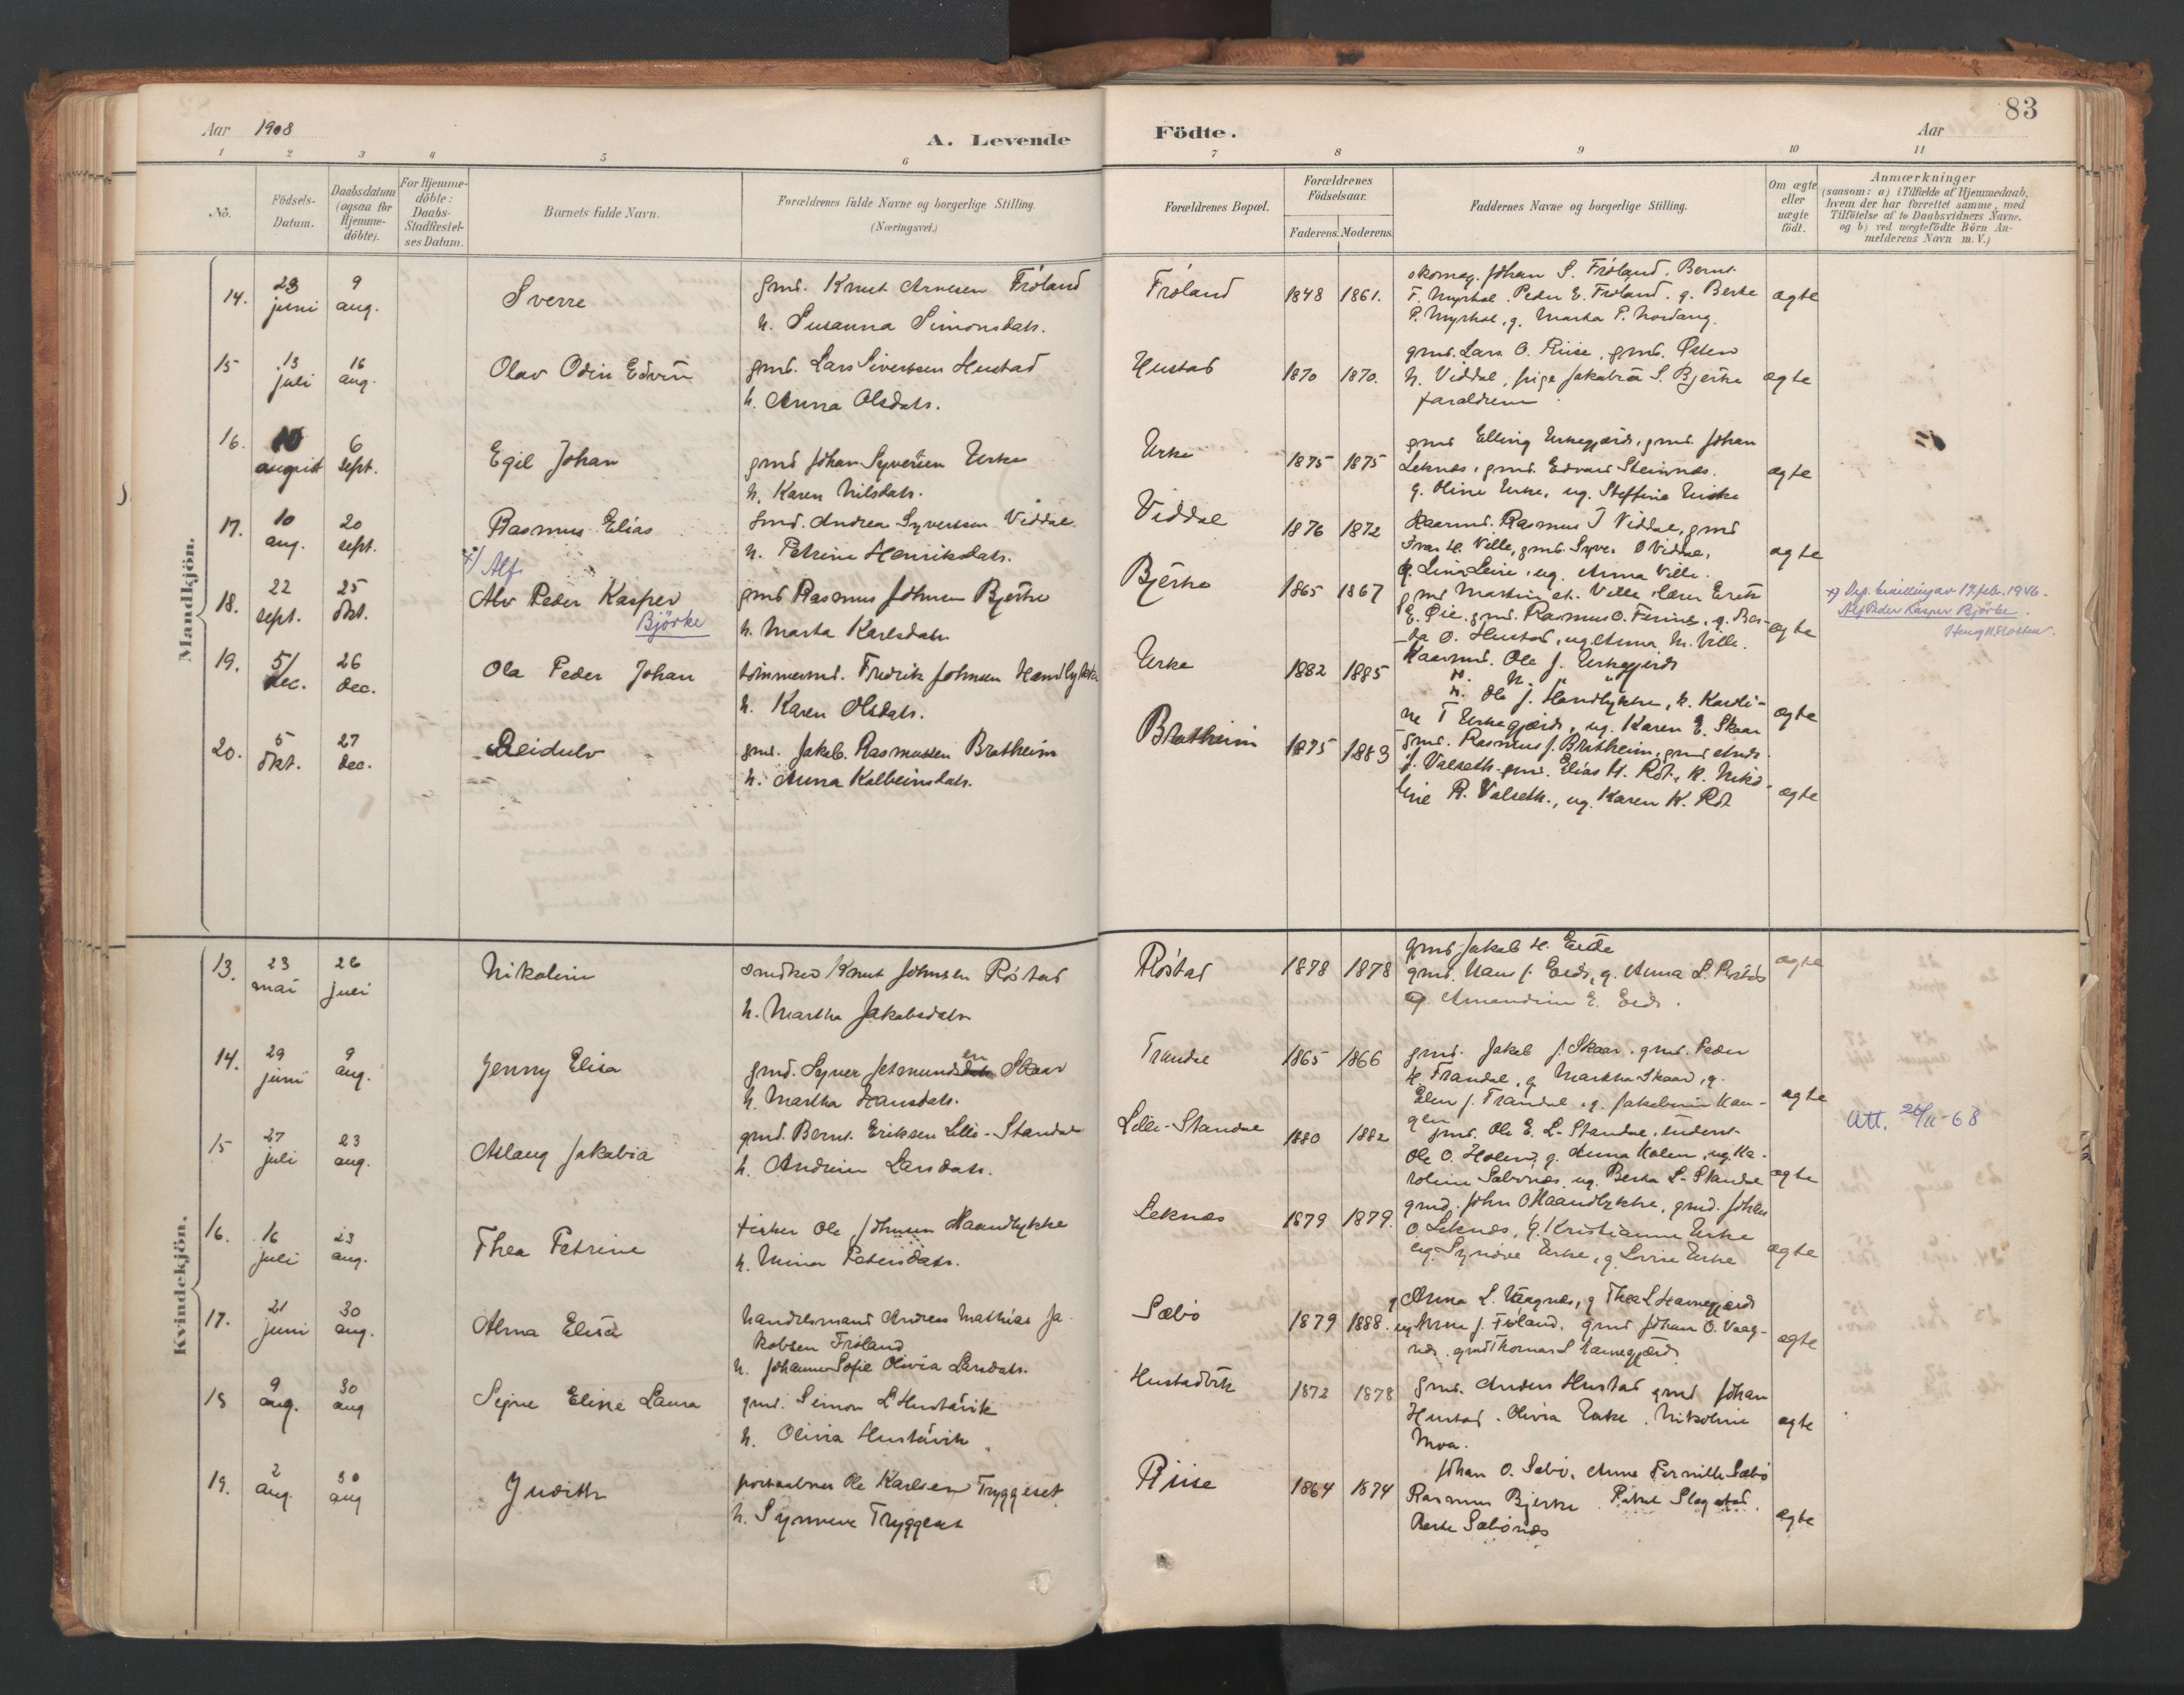 83
Aar 1908
A. Levende
Födte.
Aar
1 2 3 4 5 6 7 8 9 10 11
No.
Födsels-
Datum.
Daabsdatum
(ogsaa for
Hjemme-
döbte).
For Hjemme-
döbte:
Daabs-
Stadfæstel-
ses Datum.
Barnets fulde Navn.
Forældrenes fulde Navne og borgerlige Stilling.
(Næringsvei.)
Forældrenes Bopæl.
Forældrenes
Födselsaar.
Faderens. Moderens.
Faddernes Navne og borgerlige Stilling.
Om ægte
eller
uægte
födt.
Anmærkninger
(saasom: a) i Tilfælde af Hjemmedaab,
hvem der har forrettet samme, med
Tilföielse af to Daabsvidners Navne.
og b) ved uægtefödte Börn An-
melderens Navn m. V.)
Mandkjön.
14. 23 juni 9 aug. Sverre
gmd. Knut Arnesen Fröland
h. Susanna Simonsdatr.
Fröland 1848 1861.
skomag. Johan S. Fröland. Bernt
F. Myrhol. Peder E. Fröland. g. Berte
P. Myrhol, g. Marta P. Nordang.
ægte
15 13 juli 16 aug. Olav Odin Edvin
gmd. Lars Sivertsen Hustad
h. Anna Olsdatr.
Hustad 1870 1870.
gmd. Lars O. Riise, gmd. Østen
N. Viddal, pige Jakobia S. Bjerke
foraldrene
ægte
16. 10 august 6 sept. Egil Johan
gmd Johan Syversen Urke
h. Karen Nilsdatr.
Urke 1875 1875
gmd Elling Urkegjærd, gmd. Johan
Leknes, gmd. Edvard Steinnes.
g. Oline Urke, ug. Steffine Urke
ægte
17. 10 aug. 20 sept. Rasmus Elias
gmd. Andreas Syvertsen Viddal
h. Petrine Henriksdatr.
Viddal 1876 1872
Kaarmd. Rasmus I Viddal, gmd
Ivar H. Ville, gmd. Syver O Viddal,
g. Lina Leire, ug. Anna Ville.
ægte
x) Alf
18. 22 sept. 25 okt. Alv Peder Kasper
Björke
gmd Rasmus Johnsen Bjerke
h. Marta Karlsdatr
Bjerke 1865 1867
gmd Martin A. Ville, Lærer Erik
E. Øie. gmd. Rasmus O. Ferine, g. Ber-
ta O. Hustad, ug. Anna M. Ville.
ægte
x) Dep. bevilling av 19. febr. 1946.
Alf Peder Kasper Björke.
19. 5/ dec. 26 dec. Ola Peder Johan
tömmermd. Fredrik Johnsen Haandlykke
h. Karen Olsdatr.
Urke 1882 1885
Kaarmd. Ole J. Urkegjerde
h. " "
h. Ole J. Handlykke, h. Karoli-
ne T Urkegjærd, ug. Karen E. Skaar
ægte
20. 5 okt. 27 dec. Reidulv
gmd. Jakob Rasmussen Bratheim
h. Anna Kolbeinsdatr.
Bratheim 1875 1883
gmd. Rasmus J. Bratheim, gmd And.
J. Valseth gmd. Elias H. Röt, h. Niko-
line R. Valseth., ug. Karen K. Röt
ægte
Kvindekjön.
13. 23 mai 26 juli Nikoline
snedker Knut Johnsen Röstad
h. Martha Jakobsdatr
Röstad 1878 1878
gmd Jakob H. Eide
gmd. Hans J. Eide, g. Anna L. Röstad
g. Amandine E. Eide.
ægte
14. 29 juni 9 aug. Jenny Elisa
gmd. Syver Jetmundsen Skaar
h. Martha Hansdatr.
Trandal 1865 1866
gmd. Jakob J. Skaar, gmd. Peder
H. Trandal, g Martha Skaar, g.
Elen J. Trandal, g. Jakobine Kan-
gen
ægte
15 27 juli 23 aug. Aslaug Jakobia
gmd. Bernt Eriksen Lille-Standal
h. Andrine Larsdatr.
Lille-Standal 1880 1882
gmd. Ole E. L-Standal, student
Ole O. Holen, g. Anna Holen, ug. Ka-
roline Sæbönes, ug. Berta L-Standal
ægte
Att. 26/11-68
16. 16 juli 23 aug. Thea Petrine
fisker Ole Johnsen Haandlykke
h. Mina Petersdatr.
Leknes 1879 1879.
gmd. John O Haandlykke, gmd. Johan
O. Leknes, g. Kristianne Urke
ug. Synöve Urke, g. Lovise Urke
ægte
17. 21 juni 30 aug. Alma Elisa
Handelsmand Andreas Mathias Ja-
kobsen Fröland
h. Johanne Sofie Olivia Larsdatr.
Sæbö 1879 1888.
g Anna L. Vaagnes, g Thea L Hamregjærd
ug Anne J. Fröland. gmd Johan O. Vaag-
nes. gmd Thomas L Hamregjærd
ægte
18 9 aug. 30 aug Signe Eline Laura
gmd. Simon L Hustavik
h. Olivia Hustavik.
Hustadvik 1872 1878
gmd. Anders Hustad gmd Johan
Hustad. Olivia Urke. Nikoline
Moa.
ægte
19. 2 aug. 30 aug Judith
postaabner Ole Karlsen Tryggeset
h. Synneve Tryggeset
Riise 1864 1874
Johan O. Sæbö. Anne Pernille Sæbö
Rasmus Bjerke
Berte Sæbönes
ægte